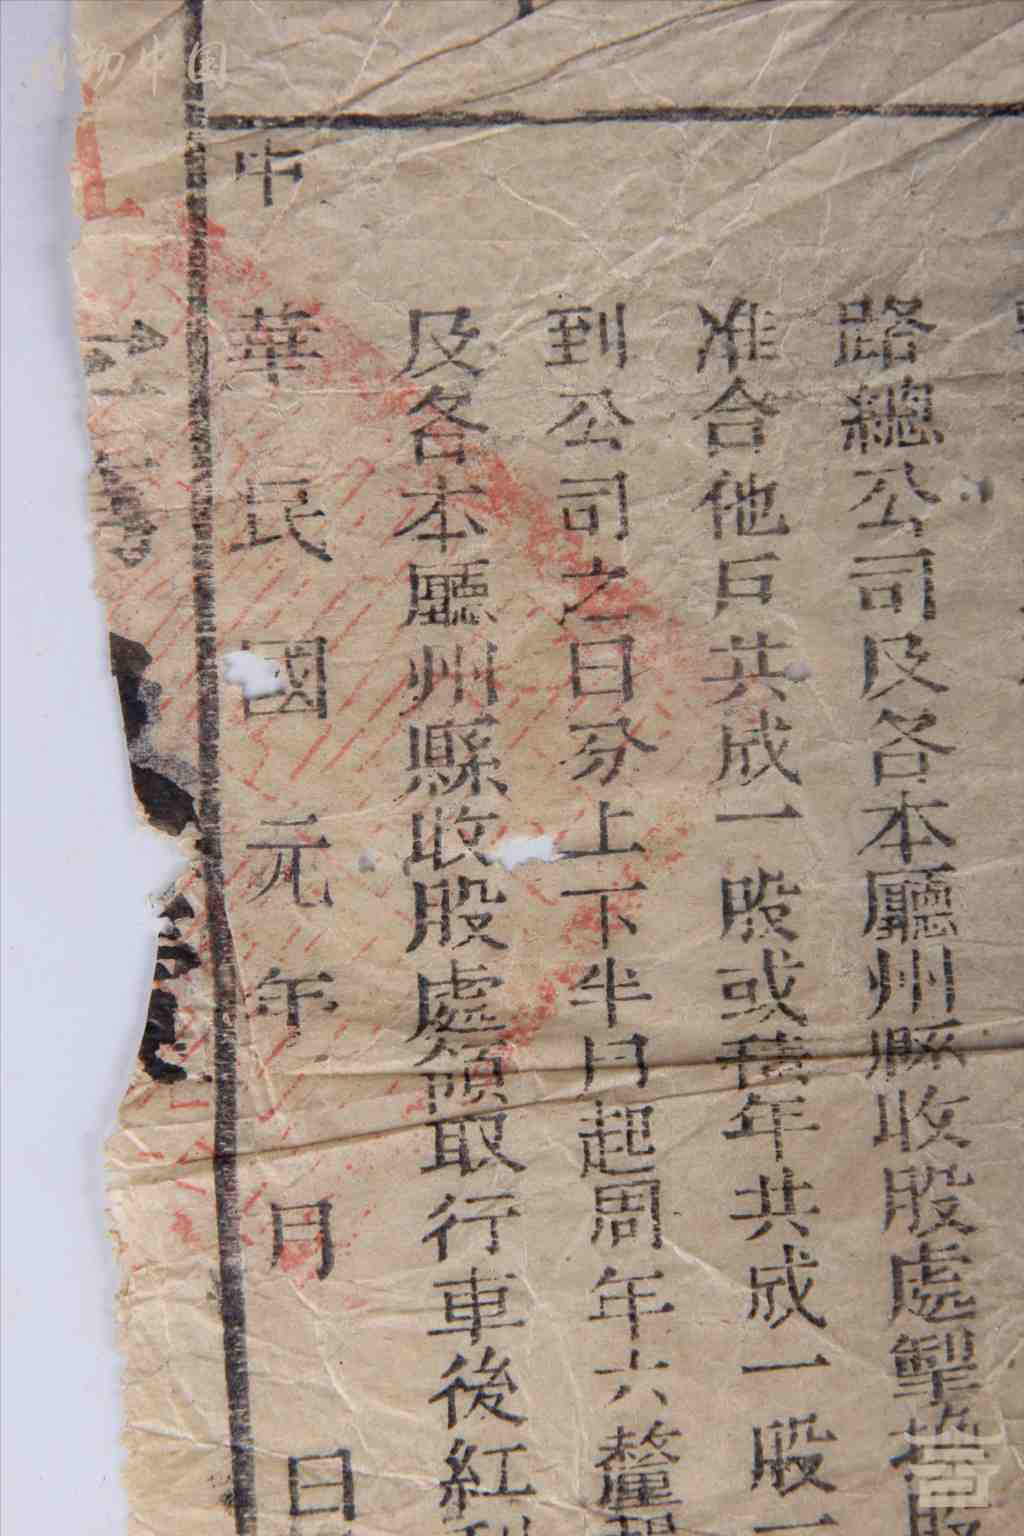 路總公司及各本廳州縣收股處掣換股
准合他戶共成一股或積年共成一股一
到公司之日分上下半月起周年六釐
及各本廳州縣收股處領取行車後紅利
中華民國元年月日